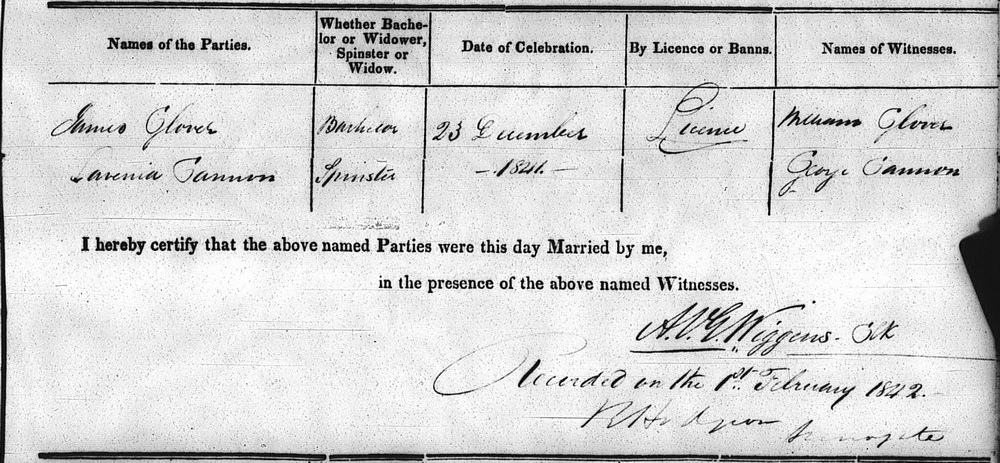 Names of the Parties. Whether Bache-lor or Widower, Spinster or Widow. Date of Celebration. By Licence or Banns. Names of Witnesses.
James Glover Bachelor 23 December Licence William Glover
Lavenia Tannon Spinster - 1841. - George Tannon
I hereby certify that the above named Parties were this day Married by me,
in the presence of the above named Witnesses.
A.V.G. Wiggins. Clk
Recorded on the 1st. February 1842.
R Hodgson Surrogate